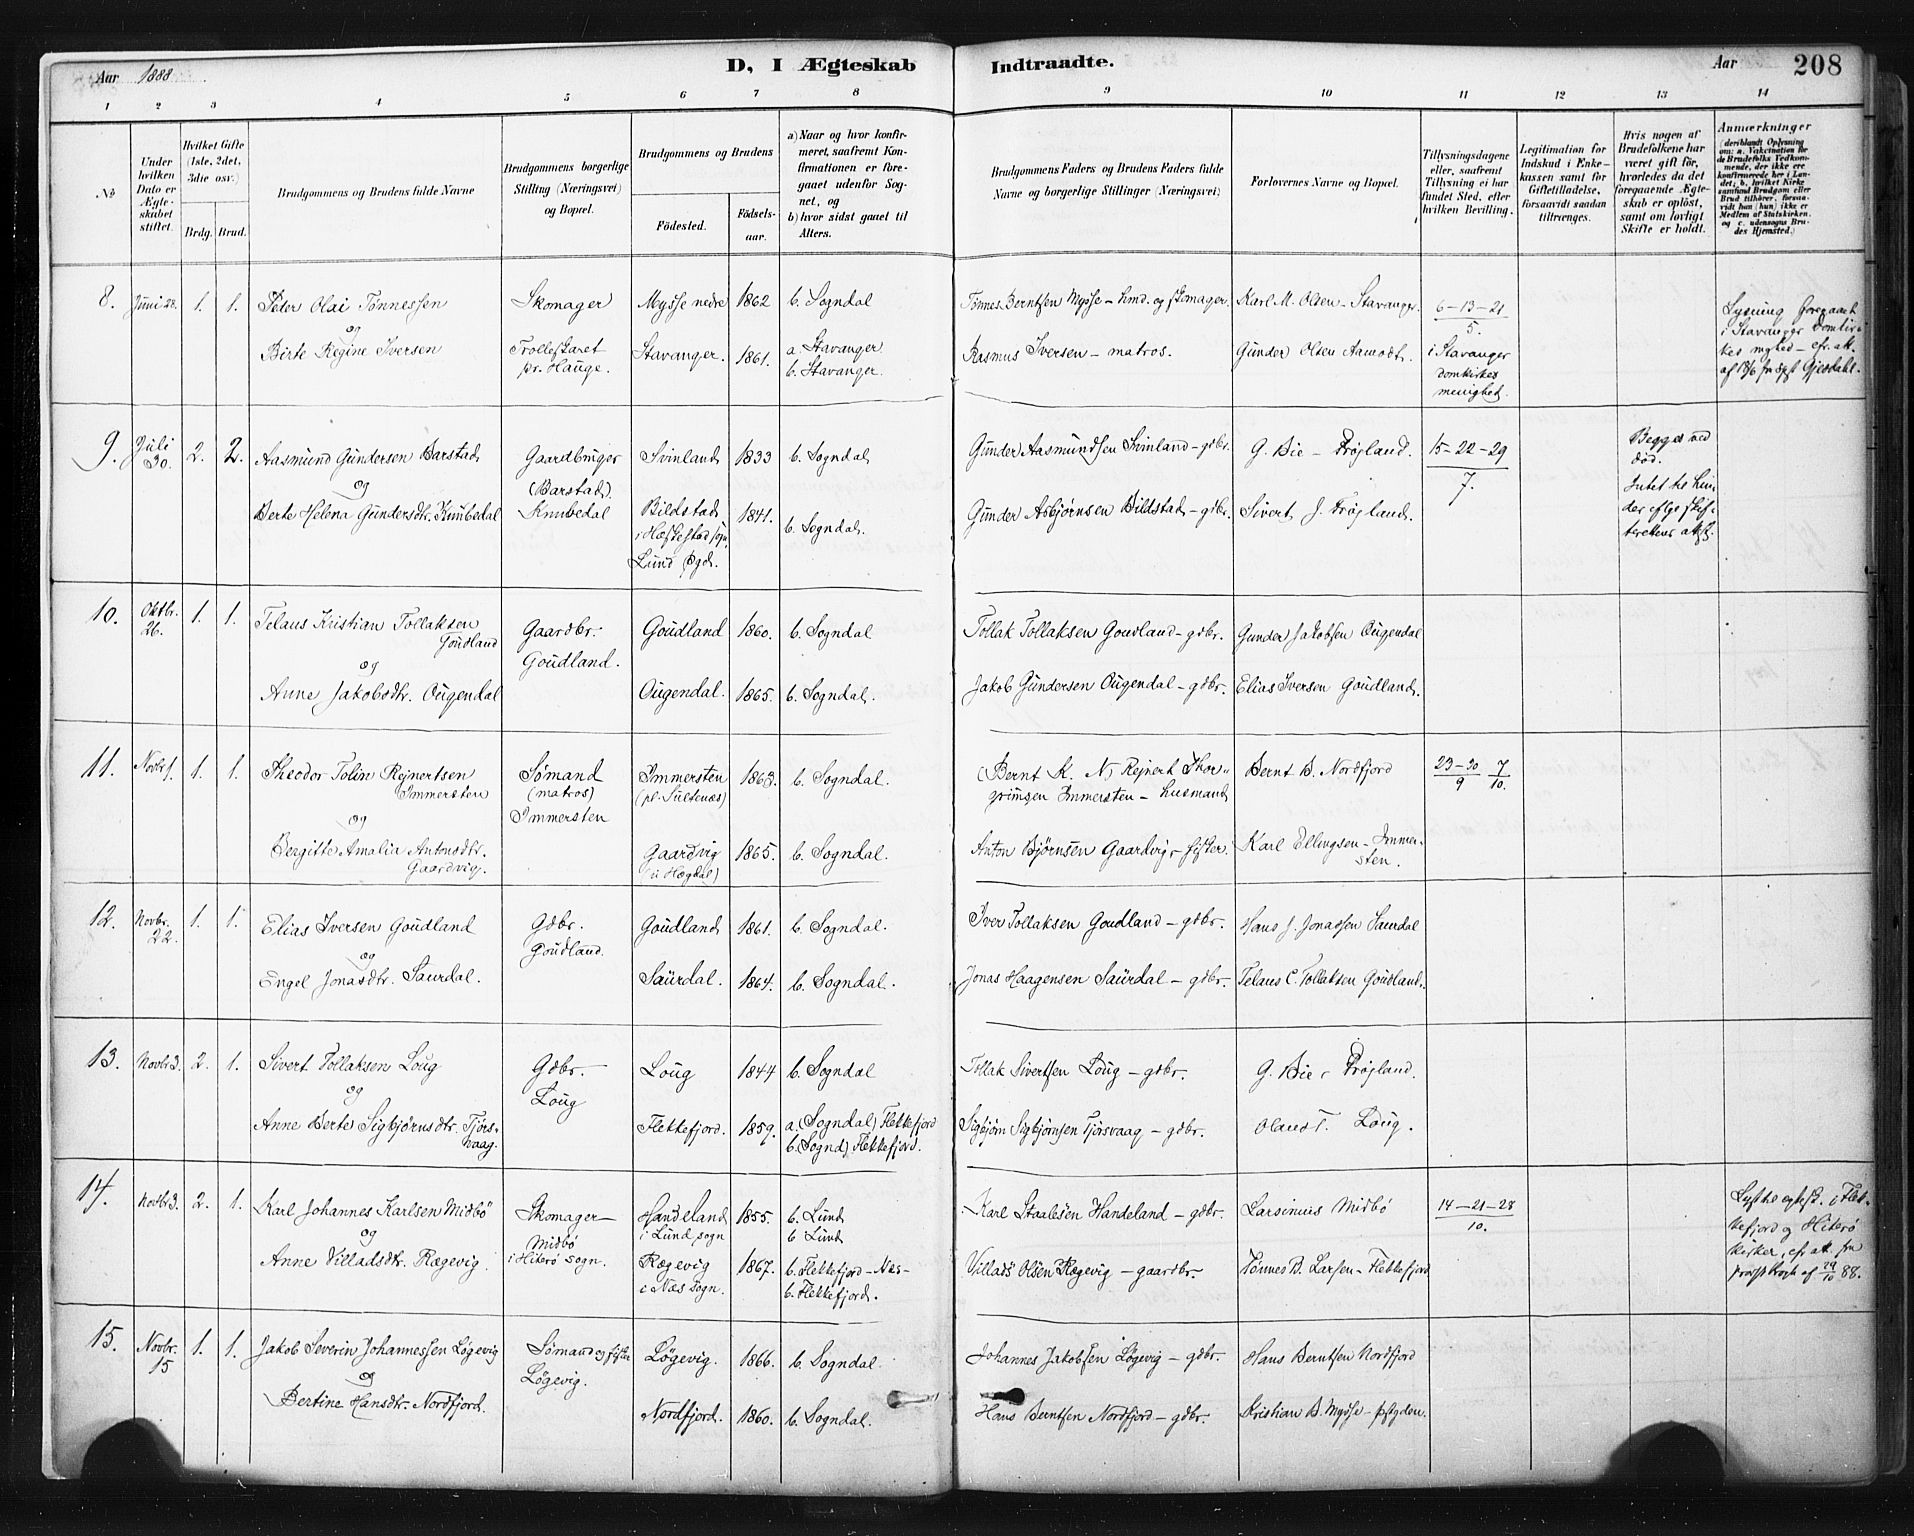 Aar 1888
D, I Ægteskab Indtraadte.
Aar 208
1 2 3 4 5 6 7 8 9 10 11 12 13 14
№
Under hvilken Dato er Ægteskabet stiftet.
Hvilket Gifte (1ste, 2det, 3die osv.)
Brdg. Brud.
Brudgommens og Brudens fulde Navne
Brudgommens borgerlige Stilling (Næringsvei) og Bopæl.
Brudgommens og Brudens
Fødested.
Fødselsaar.
a) Naar og hvor konfirmeret, saafremt Konfirmationen er foregaaet udenfor Sognet, og
b) hvor sidst gaaet til Alters.
Brudgommens Faders og Brudens Faders fulde Navne og borgerlige Stillinger (Næringsvei)
Forlovernes Navne og Bopæl.
Tillysningsdagene eller, saafremt Tillysning ei har fundet Sted, efter hvilken Bevilling.
Legitimation for Indskud i Enkekassen samt for Giftetilladelse, forsaavidt saadan tiltrænges.
Hvis nogen af Brudefolkene har været gift før, hvorledes da det foregaaende Ægteskab er opløst, samt om lovligt Skifte er holdt.
Anmærkninger
(deriblandt Oplysning om: a. Vakcination for de Brudefolks Vedkommende, der ikke ere konfirmerede her i Landet; b. hvilket Kirkesamfund Brudgom eller Brud tilhører, forsaavidt han (hun) ikke er Medlem af Statskirken, og c. udensogns Brudes Hjemsted.)
8. Juni 28. 1. 1. Peder Olai Tønnessen Skomager Mysse nedre 1862 b. Sogndal Tønnes Berntsen Mysse - hmd. og skomager. Karl M. Olsen - Stavanger. 6-13-21
og 5.
Birte Regine Iversen Trolleskaret pr. Hauge. Stavanger. 1861. a. Stavanger b. Stavanger. Rasmus Iversen - matros. Gunder Olsen Aamodt. i Stavanger domkirkes menighet.
Lysning foregaaet
i Stavanger Domkir-
kes myhed - efr. att.
af 18/6 fra spst Gjesdahl.
9. Juli 30. 2. 2. Aasmund Gundersen Barstad Gaardbruger (Barstad). Svinland 1833 b. Sogndal Gunder Aasmundsen Svinland - gdbr. G. Bie - Frøyland. 15-22-29
og 7.
Berte Helena Gundersdtr. Knubedal Knubedal Bildstad i Hæskestad sogn, Lund pgd. 1841. b. Sogndal. Gunder Asbjørnsen Bildstad - gdbr. Sivert J. Frøyland.
Begges ved
død.
Intet til hin-
der eflge skif-
terettens attst.
10. Oktbr. 26. 1. 1. Telaus Kristian Tollaksen Goudland Gaardbr. Goudland. Goudland 1860. b. Sogndal Tollak Tollaksen Goudland - gdbr. Gunder Jakobsen Ougendal
og
Anne Jakobsdtr. Ougendal Ougendal. 1865. b. Sogndal. Jakob Gundersen Ougendal - gdbr. Elias Iversen Goudland.
11. Novbr 1. 1. 1. Theodor Tolin Rejnertsen Immersten Sømand (matros) Immersten Immersten (pl. Sultenæs) 1863. b. Sogndal. (Bernt K. N) Rejnert Thor-
grimsen Immersten - husmand Bernt B. Nordfjord 23-30/9 7/10.
og
Bergitte Amalia Antonsdtr. Gaardvig. Gaardvig (i Hægdal) 1865. b. Sogndal. Anton Bjørnsen Gaardvig - fisker. Karl Ellingsen - Immersten.
12. Novbr. 22. 1. 1. Elias Iversen Goudland Gdbr. Goudland. Goudland 1861. b. Sogndal. Iver Tollaksen Goudland - gdbr. Hans J. Jonassen Saurdal
og
Engel Jonasdtr. Saurdal. Saurdal. 1864. b. Sogndal. Jonas Haagensen Saurdal - gdbr. Telaus C. Tollaksen Goudland.
13. Novbr 3. 2. 1. Sivert Tollaksen Loug Gdbr. Loug Loug 1844 b. Sogndal Tollak Sivertsen Loug - gdbr. G. Bie - Frøyland.
og
Anne Berte Sigbjørnsdtr. Tjørsvaag. Flekkefjord. 1859. a. (Sogndal) Flekkefjord b. (Sognd) Flekkefjord. Sigbjørn Sigbjørnsen Tjørsvaag - gdbr. Olaus T. Loug.
14. Novbr 3. 2. 1. Karl Johannes Karlsen Midbö Skomager Midbö i Hiterø sogn. Handeland i Lund sogn 1855. b. Lund b Lund Karl Staalesen Handeland - gdbr. Larsinius Midbö 14-21-28
og 10.
Anne Villadsdtr. Rægevig. Rægevig i Næs sogn. 1867. b. Flekkefjord - Næs - b. Flekkefjord. Villads Olsen Rægevig - gaardbr. Tønnes B. Larsen - Flekkefjord
Lyst til egtesk. i Flek-
kefjord og Hiterø
kirker, efr att. fra
prost af 29/10 88.
15. Novbr. 15 1. 1. Jakob Severin Johannessen Løgevig Sømand og fisker Løgevig. Løgevig. 1866. b. Sogndal. Johannes Jakobsen Løgevig - gdbr. Hans Berntsen Nordfjord
og
Bertine Hansdtr. Nordfjord. Nordfjord. 1860. b. Sogndal. Hans Berntsen Nordfjord - gdbr. Kristian B. Mydse - pstgden.